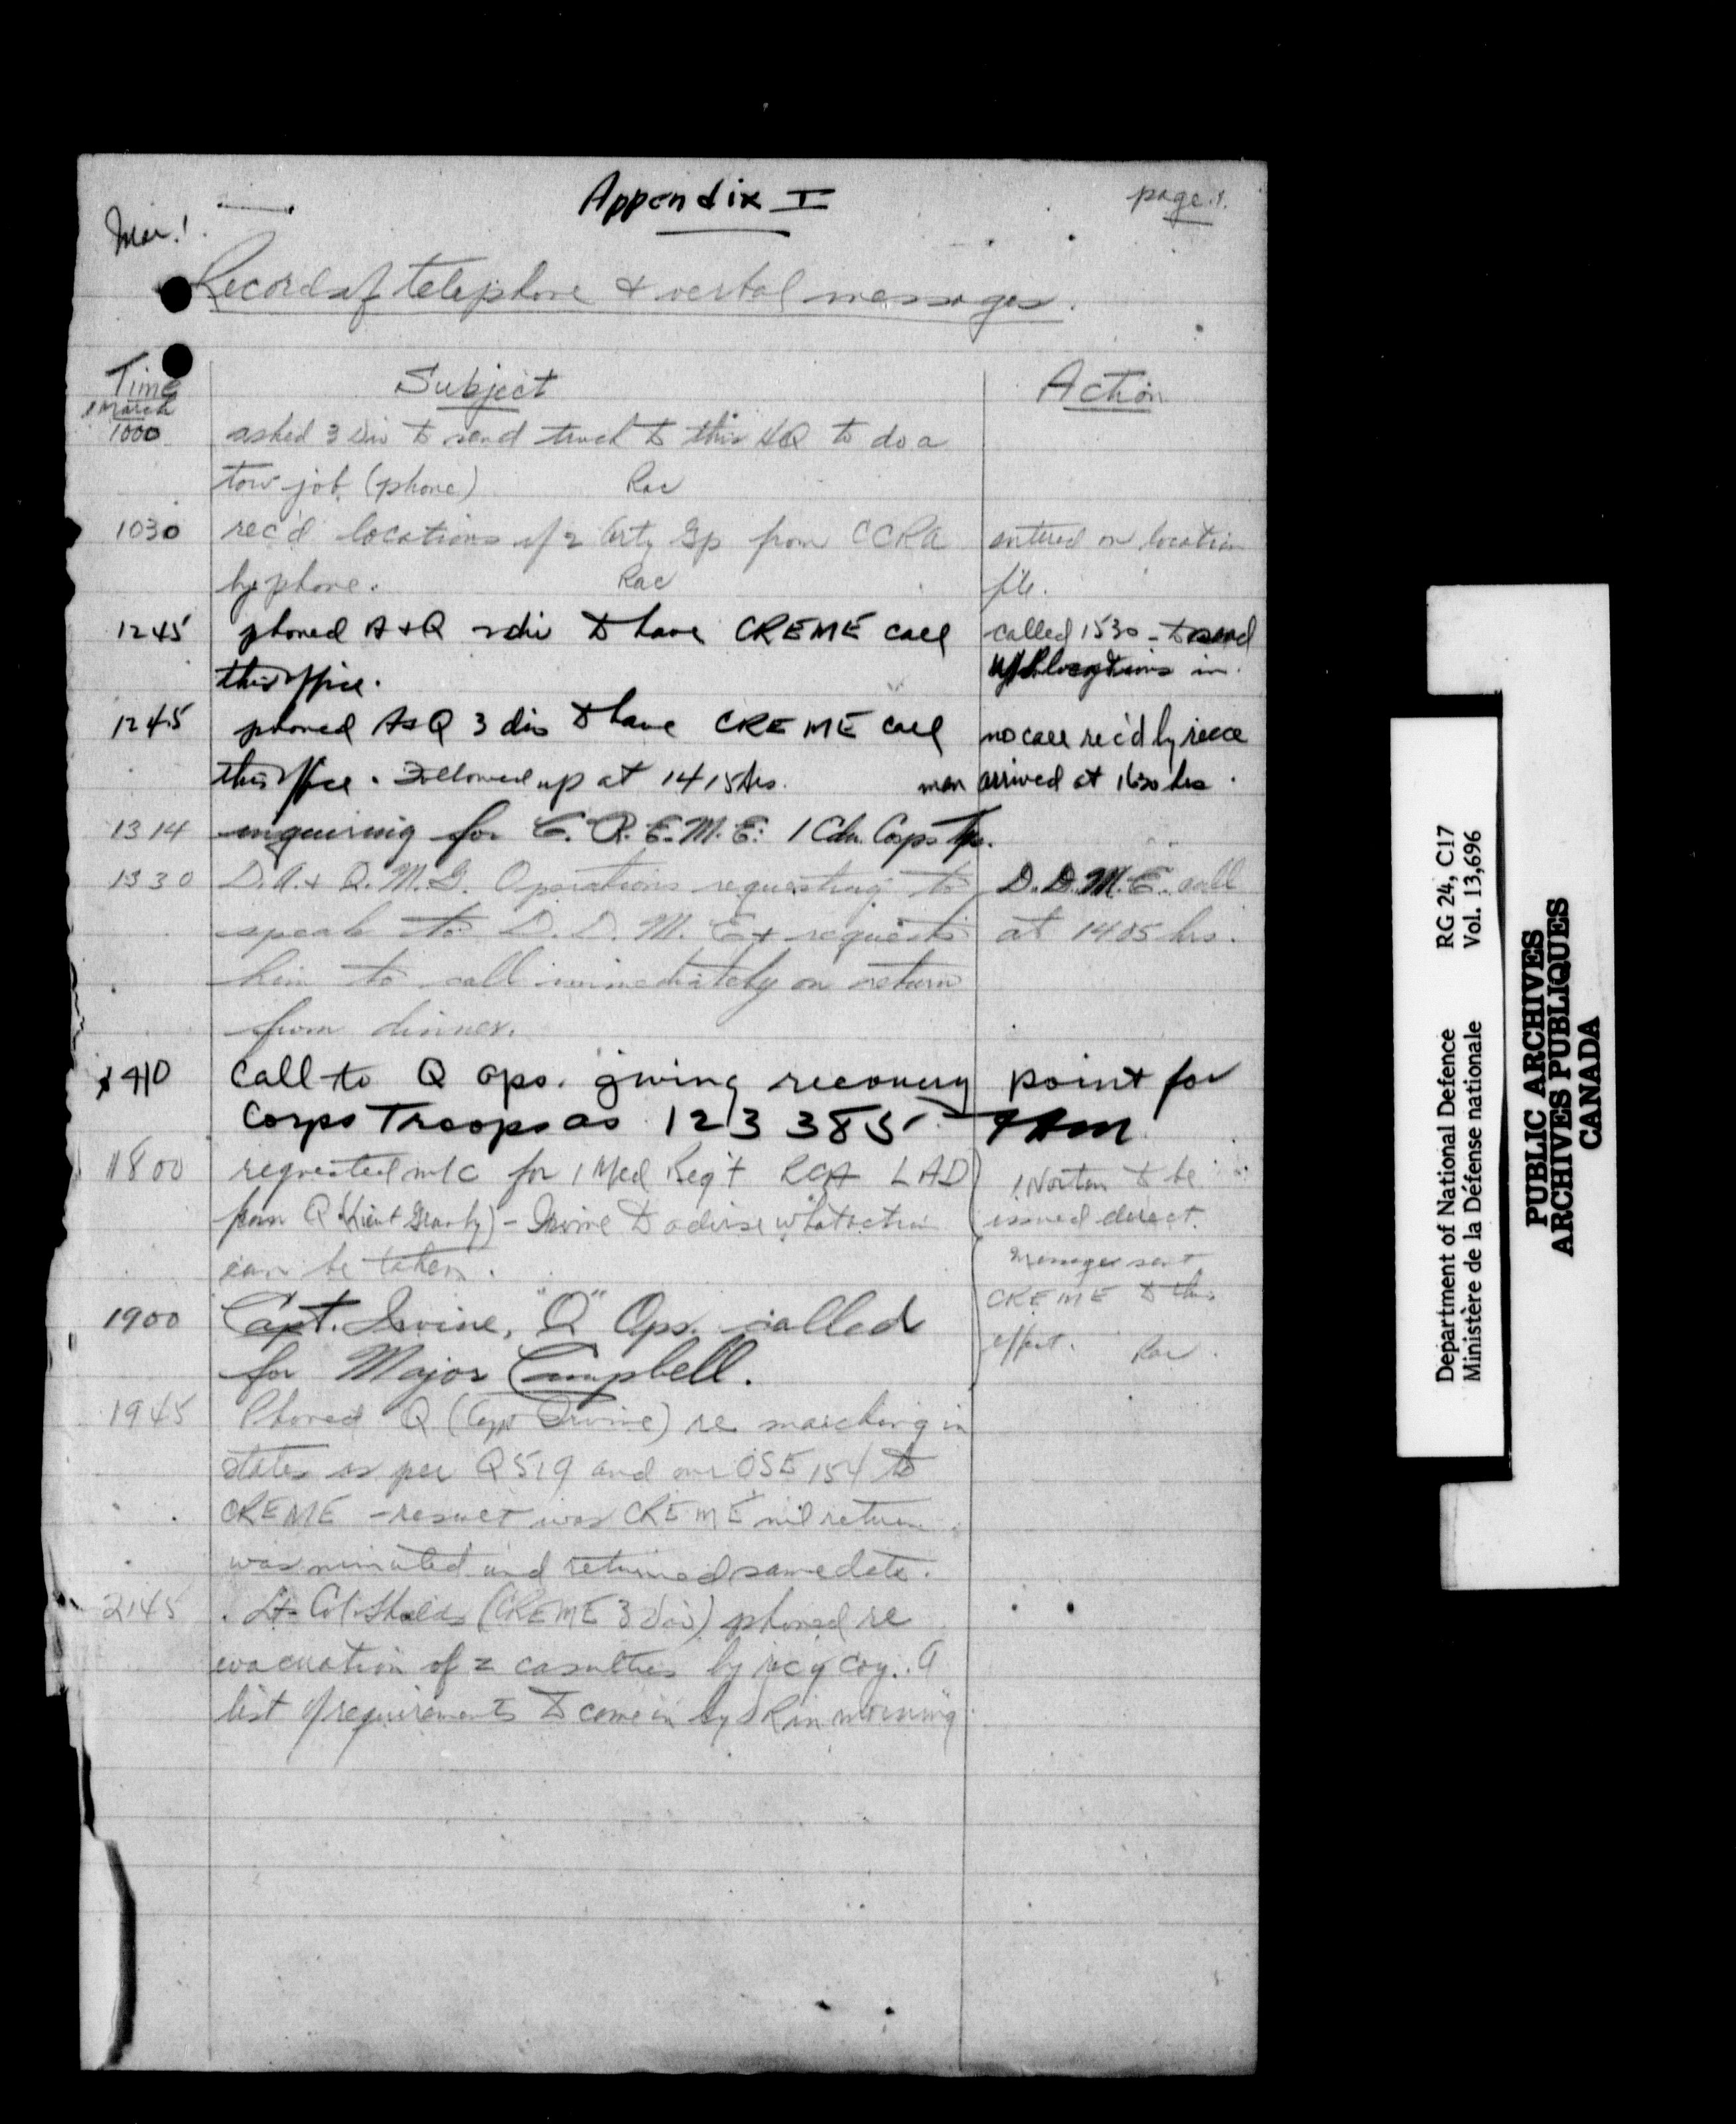 Appendix I
page 1.
Mar. 1
Record of telephone & verbal messages.
Time Subject Action
1 March
1000 asked 3 Div to send truck to this HQ to do a
tow job (phone) Rac
1030 rec'd locations of 2 Arty Gp from CCRA entered on location
by phone. Rac file.
1245 phoned A+Q 2 div to have CREME call called 1530 - to send
this office. locations in.
1245 phoned A&Q 3 div to have CREME call no call rec'd by recce
this office. Followed up at 1415 hrs. man arrived at 1630 hrs.
1314 inquiring for C.R.E.M.E. 1 Cdn. Corps Tps.
1330 D.A.& Q.M.G. Operations requesting to D.D.M.E. call
speak to D.D.M.E & requests at 1405 hrs.
him to call immediately on return
from dinner.
1410 Call to Q ops. giving recovery point for
Corps Troops as 123385
1800 requested m/c for 1 Med Reg't RCA LAD 1 Norton to be
from Q - Irvine to advise what action issued direct.
can be taken. Message sent
CREME to this
1900 Capt. Irvine, "Q" Ops. called effect. Rac.
for Major Campbell.
1945 Phoned Q (Capt Irvine) re marching in
states as per Q519 and our OSE 154 to
CREME - result was CREME nil return
was minuted and returned same date.
2145 Lt-Col Shields (CREME 3 Div) phoned re
evacuation of 2 casualties by rec'y coy. A
list of requirements to come in by DR in morning
Department of National Defence RG 24, C17
Ministère de la Défense nationale Vol. 13,696
PUBLIC ARCHIVES
ARCHIVES PUBLIQUES
CANADA